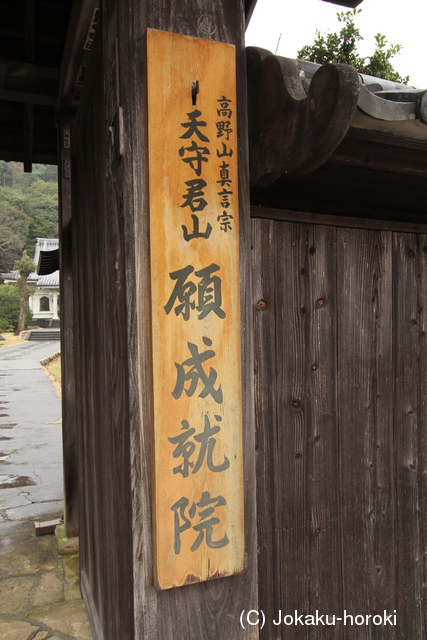 高野山真言宗
天守君山
願成就院
(C) Jokaku-horoki